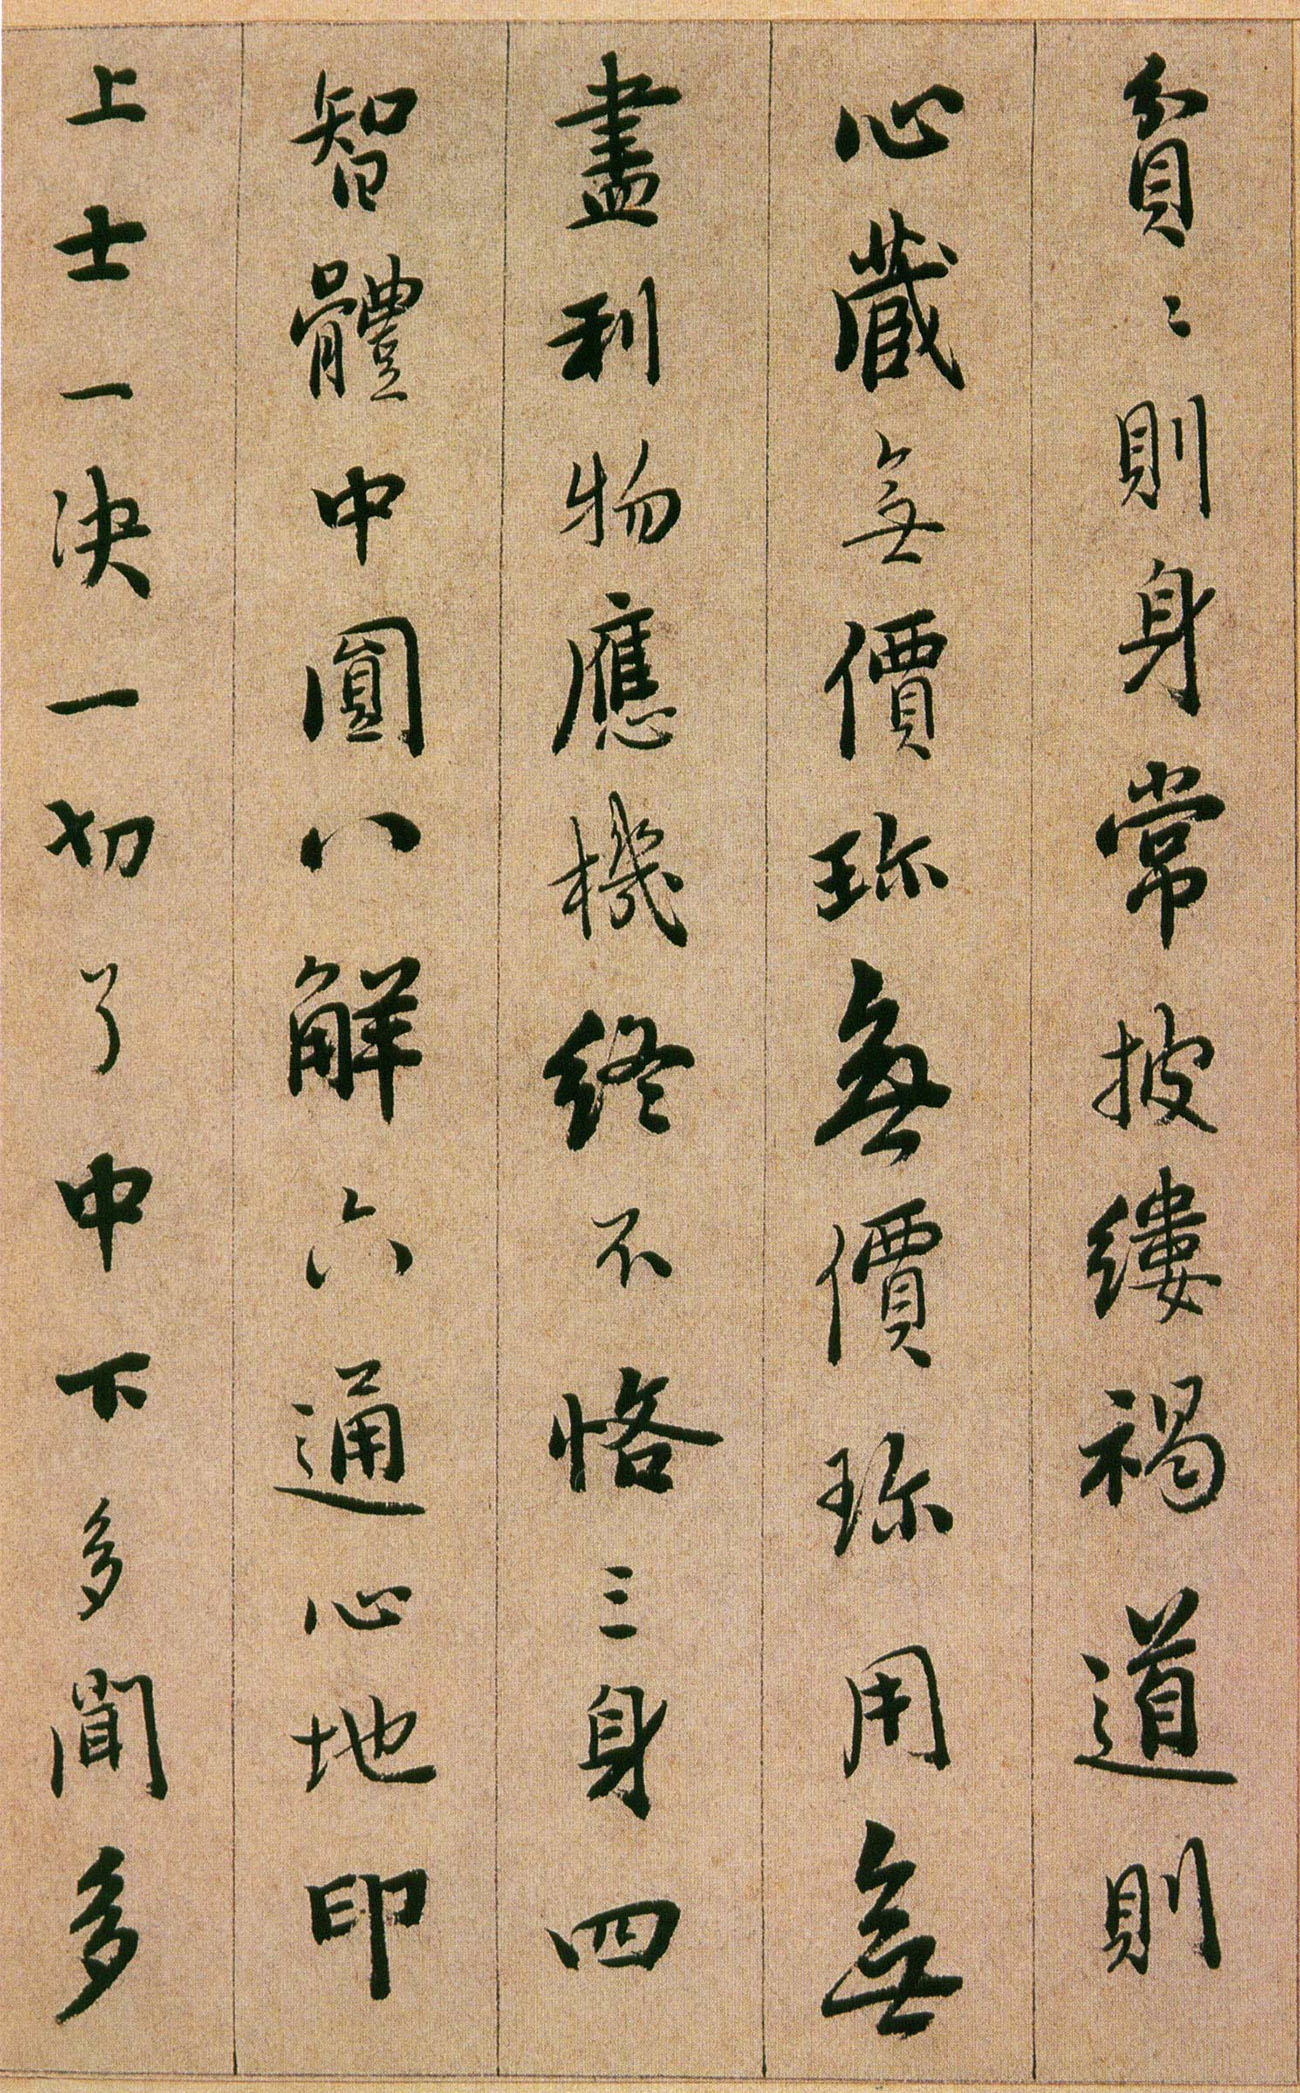 貧〻〻則身常披縷褐道則
心藏無價珎無價珎用無
盡利物應機終不恡三身四
智體中圓八解六通心地印
上士一決一切了中下多聞多